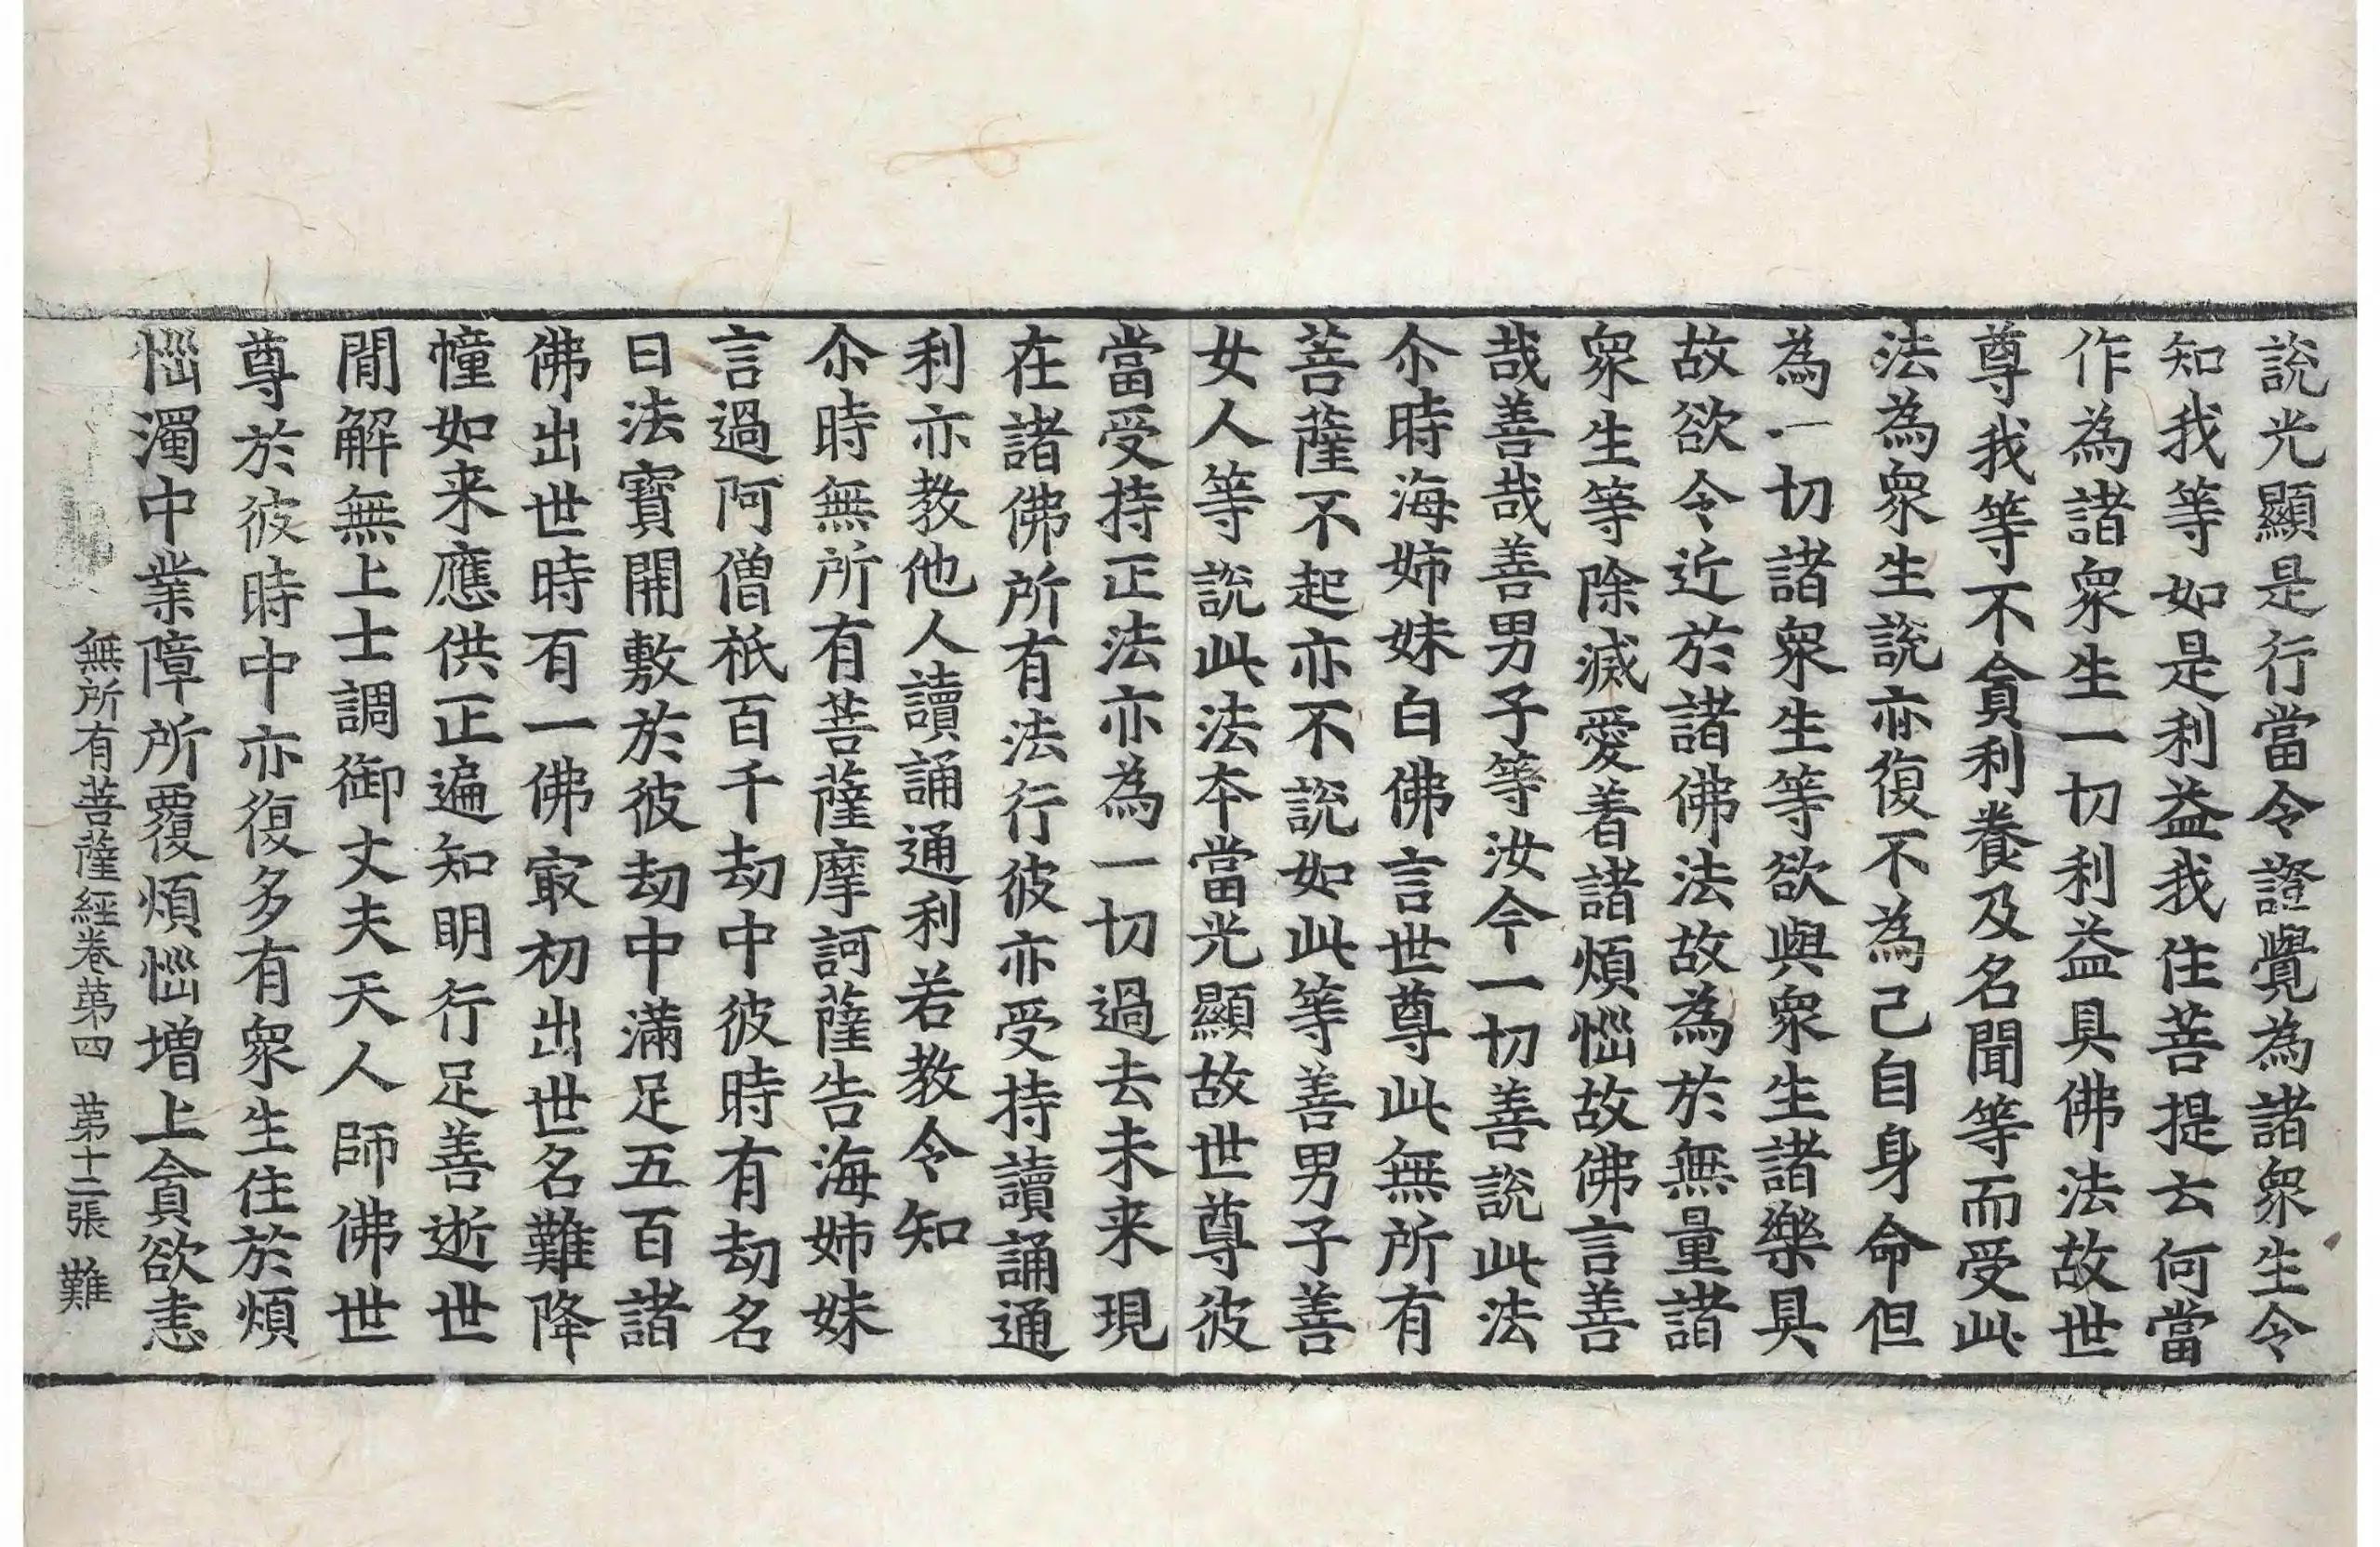 說光顯是行當令證覺為諸衆生令
知我等如是利益我住菩提去何當
作為諸衆生一切利益具佛法故世
尊我等不貪利養及名聞等而受此
法為衆生說亦復不為己自身命但
為一切諸衆生等欲與衆生諸樂具
故欲令近於諸佛法故為於無量諸
衆生等除滅愛着諸煩惱故佛言善
哉善哉善男子等汝今一切善說此法
尒時海姊妹白佛言世尊此無所有
菩薩不起亦不說如此等善男子善
女人等說此法本當光顯故世尊彼
當受持正法亦為一切過去未来現
在諸佛所有法行彼亦受持讀誦通
利亦教他人讀誦通利若教令知
尒時無所有菩薩摩訶薩告海姊妹
言過阿僧祇百千劫中彼時有劫名
曰法寶開敷於彼劫中滿足五百諸
佛出世時有一佛寂初出世名難降
幢如来應供正遍知明行足善逝世
間解無上士調御丈夫天人師佛世
尊於彼時中亦復多有衆生住於煩
惱濁中業障所覆煩惱增上貪欲恚
無所有菩薩經卷第四 第十二張 難